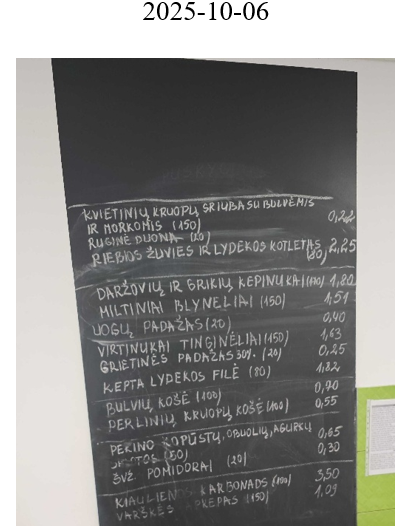 2025-10-06
KVIETINIŲ KRUOPŲ SRIUBA SU BULVĖMIS
IR MORKOMIS (150) 0,22
RUGINĖ DUONA (20)
RIEBIOS ŽUVIES IR LYDEKOS KOTLETAS (80) 2,25
DARŽOVIŲ IR GRIKIŲ KEPINUKAI (110) 1,80
MILTINIAI BLYNELIAI (150) 1,51
UOGŲ PADAŽAS (20) 0,40
VIRTINUKAI TINGINĖLIAI (150) 1,63
GRIETINĖS PADAŽAS 30%. (20) 0,25
KEPTA LYDEKOS FILĖ (80) 1,82
BULVIŲ KOŠĖ (100) 0,70
PERLINIŲ KRUOPŲ KOŠĖ (100) 0,55
PEKINO KOPŪSTŲ, OBUOLIŲ, AGURKŲ 0,65
(50)
ŠVŽ. POMIDORAI (20) 0,30
KIAULIENOS KARBONADS 3,50
VARŠKĖS APKEPAS (150) 1,09